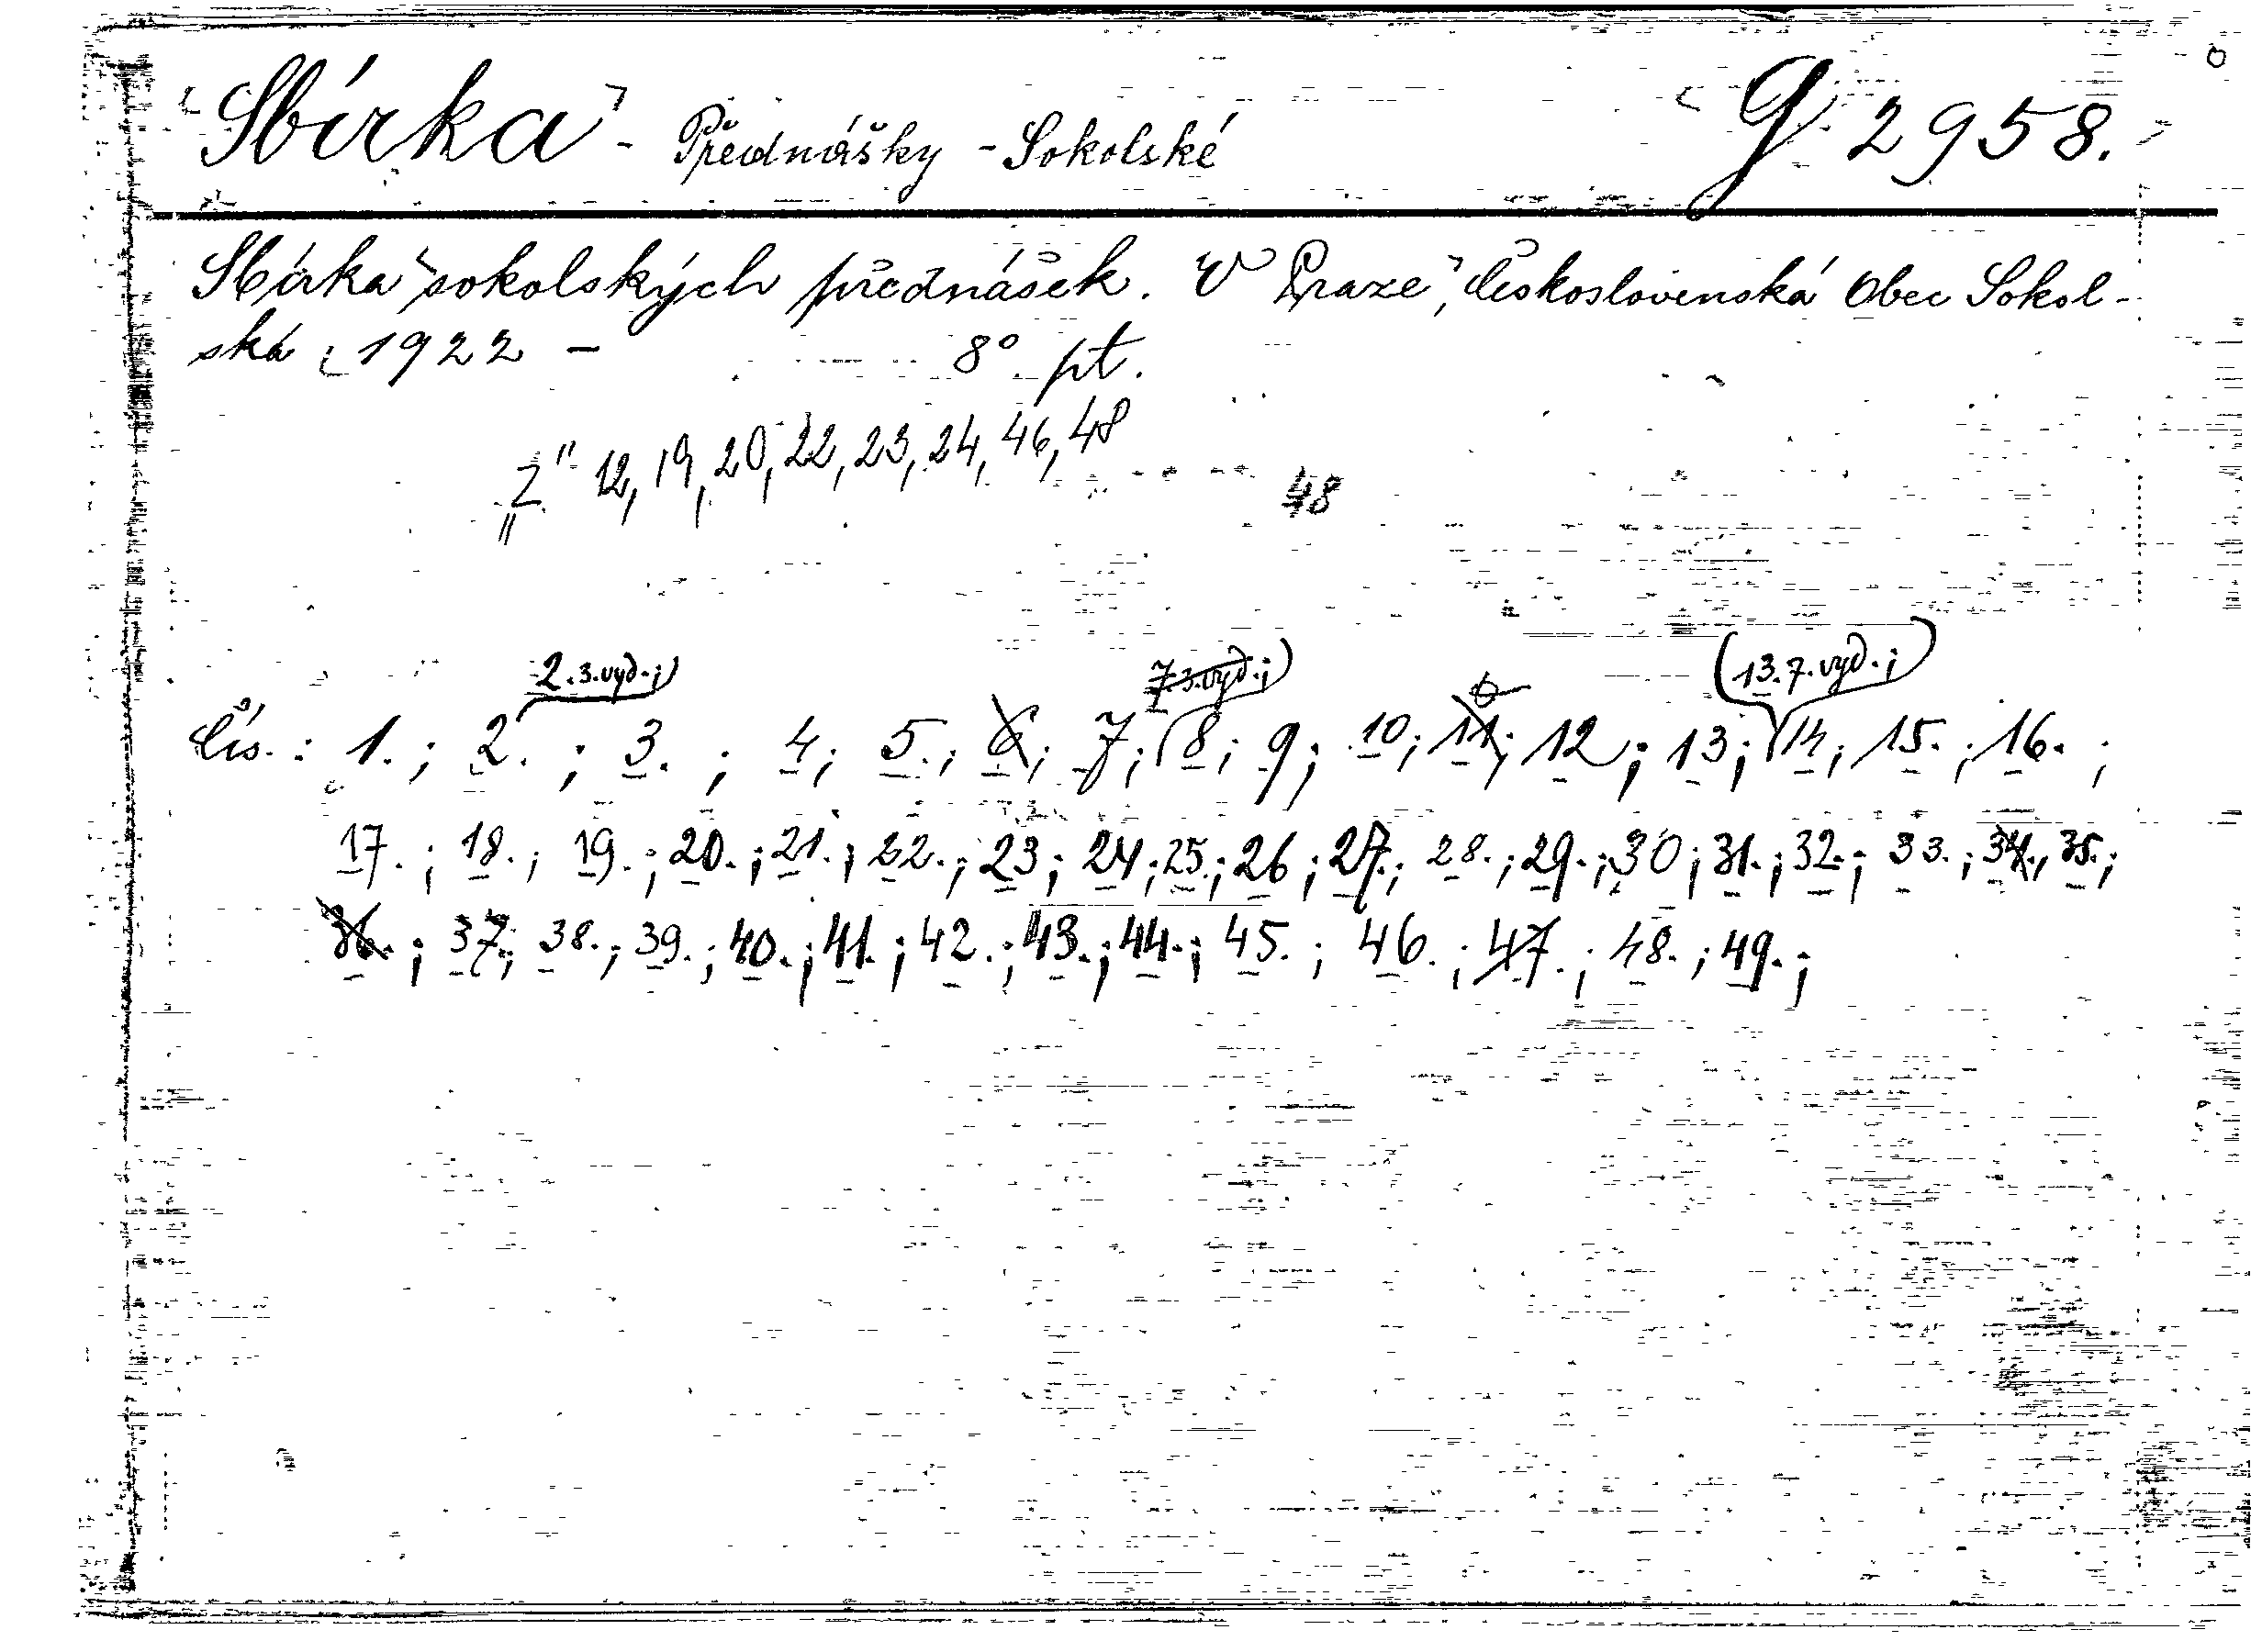 Sbírka - Přednášky - Sokolské G 2958.
Sbírka sokolských přednášek. V Praze, Československá Obec Sokol-
ská 1922 - 8° pt.
Z" 12, 19, 20, 22, 23, 24, 46, 48
48
2.3.vyd.; 7.3.vyd.; 13.7.vyd.;
Čís.: 1.; 2.; 3.; 4; 5.; 6; 7; 8; 9; 10; 11; 12; 13; 14; 15.; 16.;
17.; 18.; 19.; 20.; 21.; 22.; 23; 24; 25.; 26; 27.; 28.; 29.; 30; 31.; 32.; 33.; 34.; 35.;
36.; 37.; 38.; 39.; 40.; 41.; 42.; 43.; 44.; 45.; 46.; 47.; 48.; 49.;